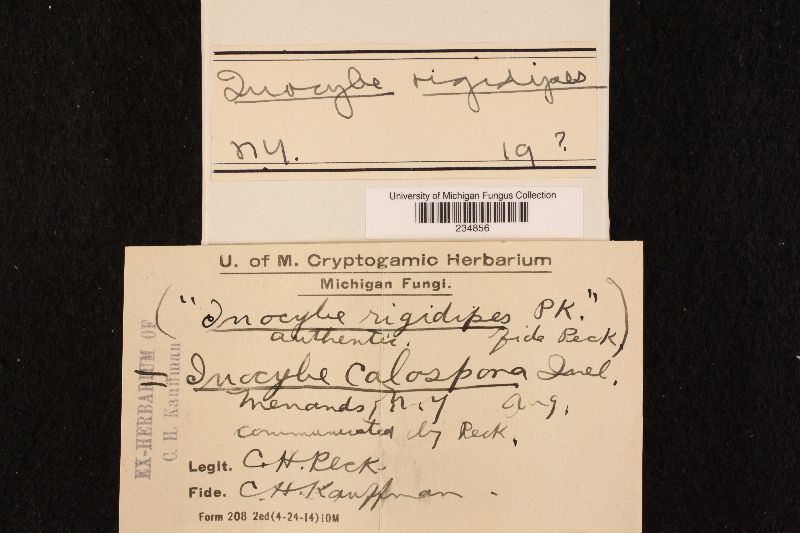 Inocybe rigidipes
N.Y. 19 ?
University of Michigan Fungus Collection
234856
U. of M. Cryptogamic Herbarium
Michigan Fungi.
("Inocybe rigidipes PK.")
authentic. fide Peck,
= Inocybe calospora Quel.
Menands, N.Y Aug.
communicated by Peck.
Legit. C.H. Peck
Fide. C.H. Kauffman -
Form 208 2ed (4-24-14) 10M
EX-HERBARIUM OF
C. H. Kauffman